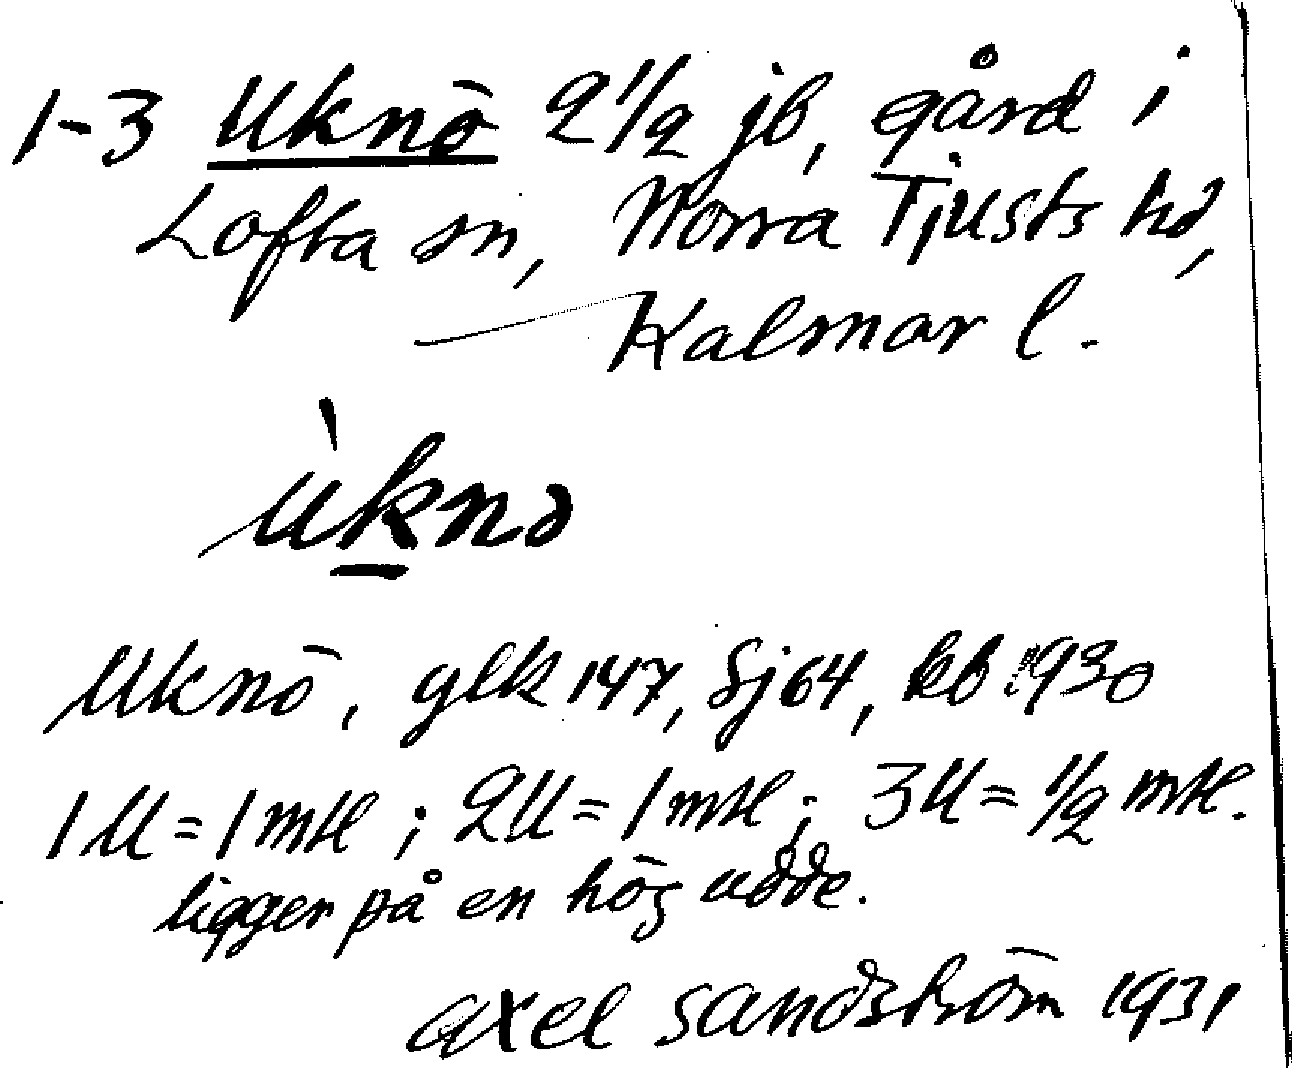 1-3 Uknö 2 1/2 jb, gård i
Lofta sn, Norra Tjusts hd,
Kalmar l.
ùknə
Uknö, glk 147, Sj 64, kb 1930
1U = 1 mtl ; 2U = 1 mtl ; 3U = 1/2 mtl.
ligger på en hög udde.
axel sandström 1931